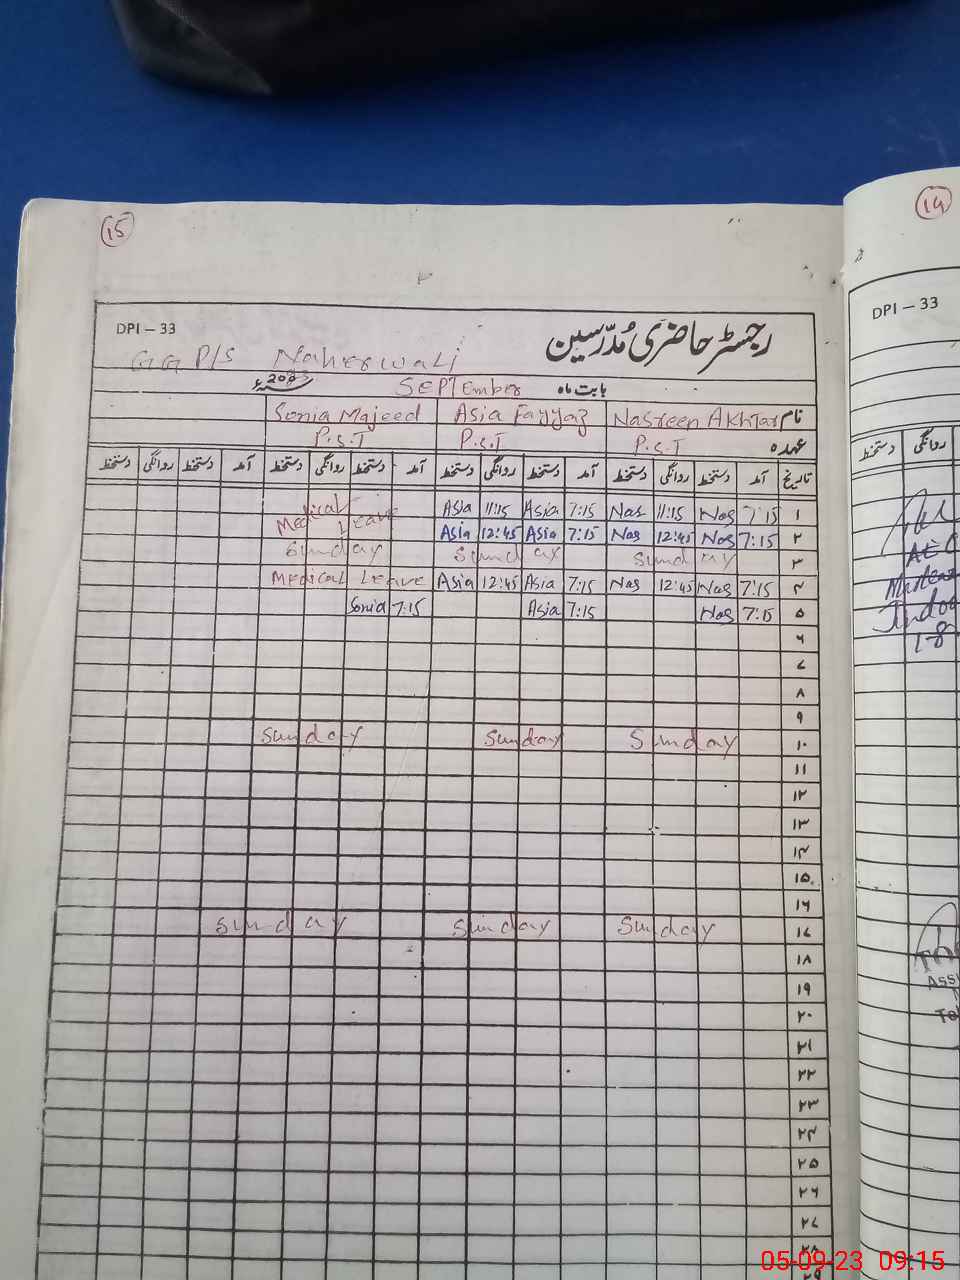 15
DPI – 33
رجسٹر حاضری مُدرّسین
GG P/S Naherwali
بابت ماہ SEPTEMber 2023ء
نام Nasreen AKHTar Asia Fayyaz Sonia Majeed
عہدہ P.S.T P.S.T P.S.T
تاریخ آمد دستخط روانگی دستخط آمد دستخط روانگی دستخط آمد دستخط روانگی دستخط آمد دستخط روانگی دستخط
۱ 7:15 Nas 11:15 Nas 7:15 Asia 11:15 Asia Medical Leave
۲ 7:15 Nas 12:45 Nas 7:15 Asia 12:45 Asia
۳ Sunday Sunday Sunday
۴ 7:15 Nas 12:45 Nas 7:15 Asia 12:45 Asia Medical Leave
۵ 7:15 Nas 7:15 Asia 7:15 Sonia
۶
۷
۸
۹
۱۰ Sunday Sunday Sunday
۱۱
۱۲
۱۳
۱۴
۱۵
۱۶
۱۷ Sunday Sunday Sunday
۱۸
۱۹
۲۰
۲۱
۲۲
۲۳
۲۴
۲۵
۲۶
۲۷
۲۸
۲۹
14
DPI – 33
روانگی دستخط
AEO
1-8
05-09-23 09:15